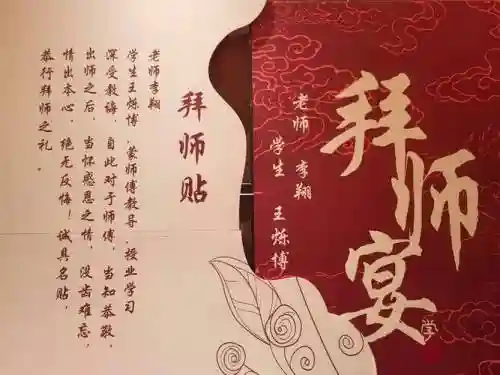 拜师宴
学
老师 李翔
学生 王烁博
拜师贴
老师李翔
学生王烁博，蒙师傅教导，授业学习
深受教诲，自此对于师傅，当知恭敬，
出师之后，当怀感恩之情，没齿难忘，
情出本心，绝无反悔！诚具名贴，
恭行拜师之礼。